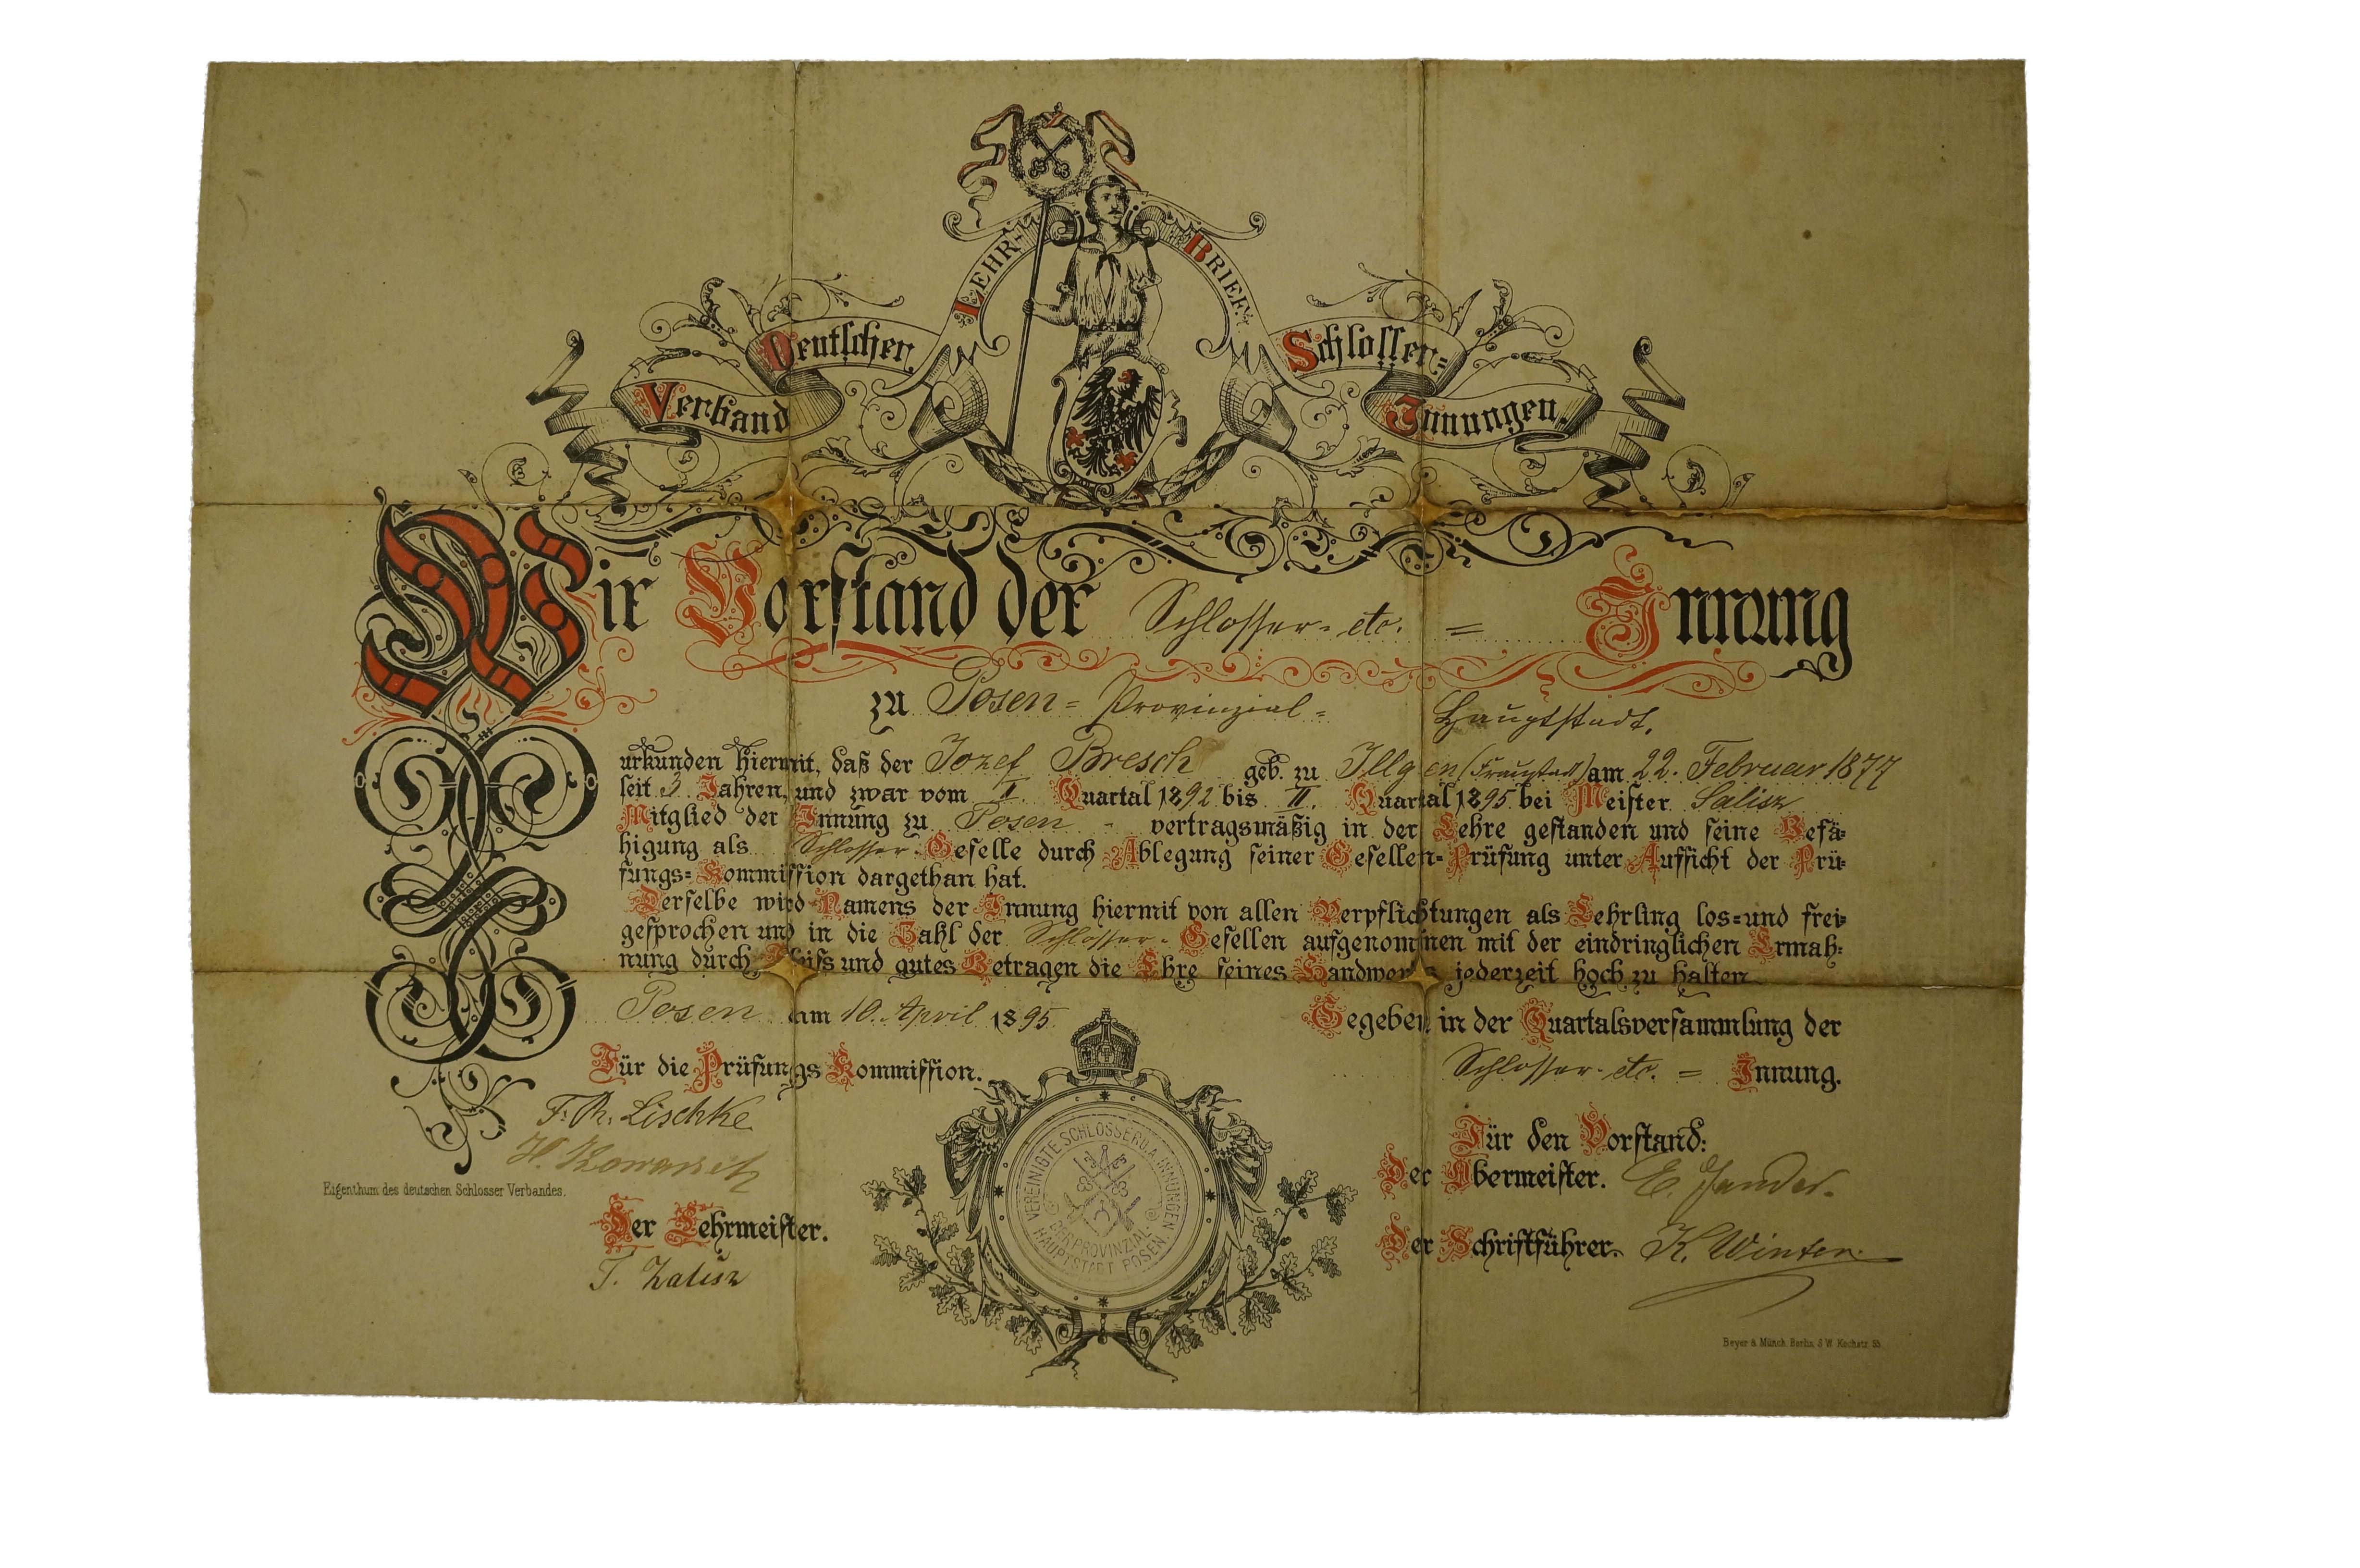 LEHR-
BRIEF.
Deutscher
Schlosser=
Verband
Innungen.
Wir Vorstand der Schlosser- etc. = Innung
zu Posen = Provinzial = Hauptstadt.
urkunden hiermit, daß der Jozef Bresch geb. zu Illgen (Fraustadt) am 22. Februar 1877
seit 3 Jahren, und zwar vom II. Quartal 1892 bis II. Quartal 1895 bei Meister Salisz
Mitglied der Innung zu Posen - vertragsmäßig in der Lehre gestanden und seine Befä=
higung als Schlosser- Geselle durch Ablegung seiner Gesellen=Prüfung unter Aufsicht der Prü=
fungs=Kommission dargethan hat.
Derselbe wird Namens der Innung hiermit von allen Verpflichtungen als Lehrling los=und frei=
gesprochen und in die Zahl der Schlosser- Gesellen aufgenommen mit der eindringlichen Ermah=
nung durch Fleiß und gutes Betragen die Ehre seines Handwerks jederzeit hoch zu halten
Posen am 10. April 1895.
Gegeben in der Quartalsversammlung der
Schlosser- etc. = Innung.
Für die Prüfungs Kommission.
Lischke
Für den Vorstand:
Der Obermeister. E.
Der Schriftführer. K. Winter.
Eigenthum des deutschen Schlosser Verbandes.
Der Lehrmeister.
T. Zalisz
VEREINIGTE SCHLOSSER U.A. INNUNGEN
DER PROVINZIAL-
HAUPTSTADT POSEN.
Beyer & Münch Berlin S W Kochstr. 55